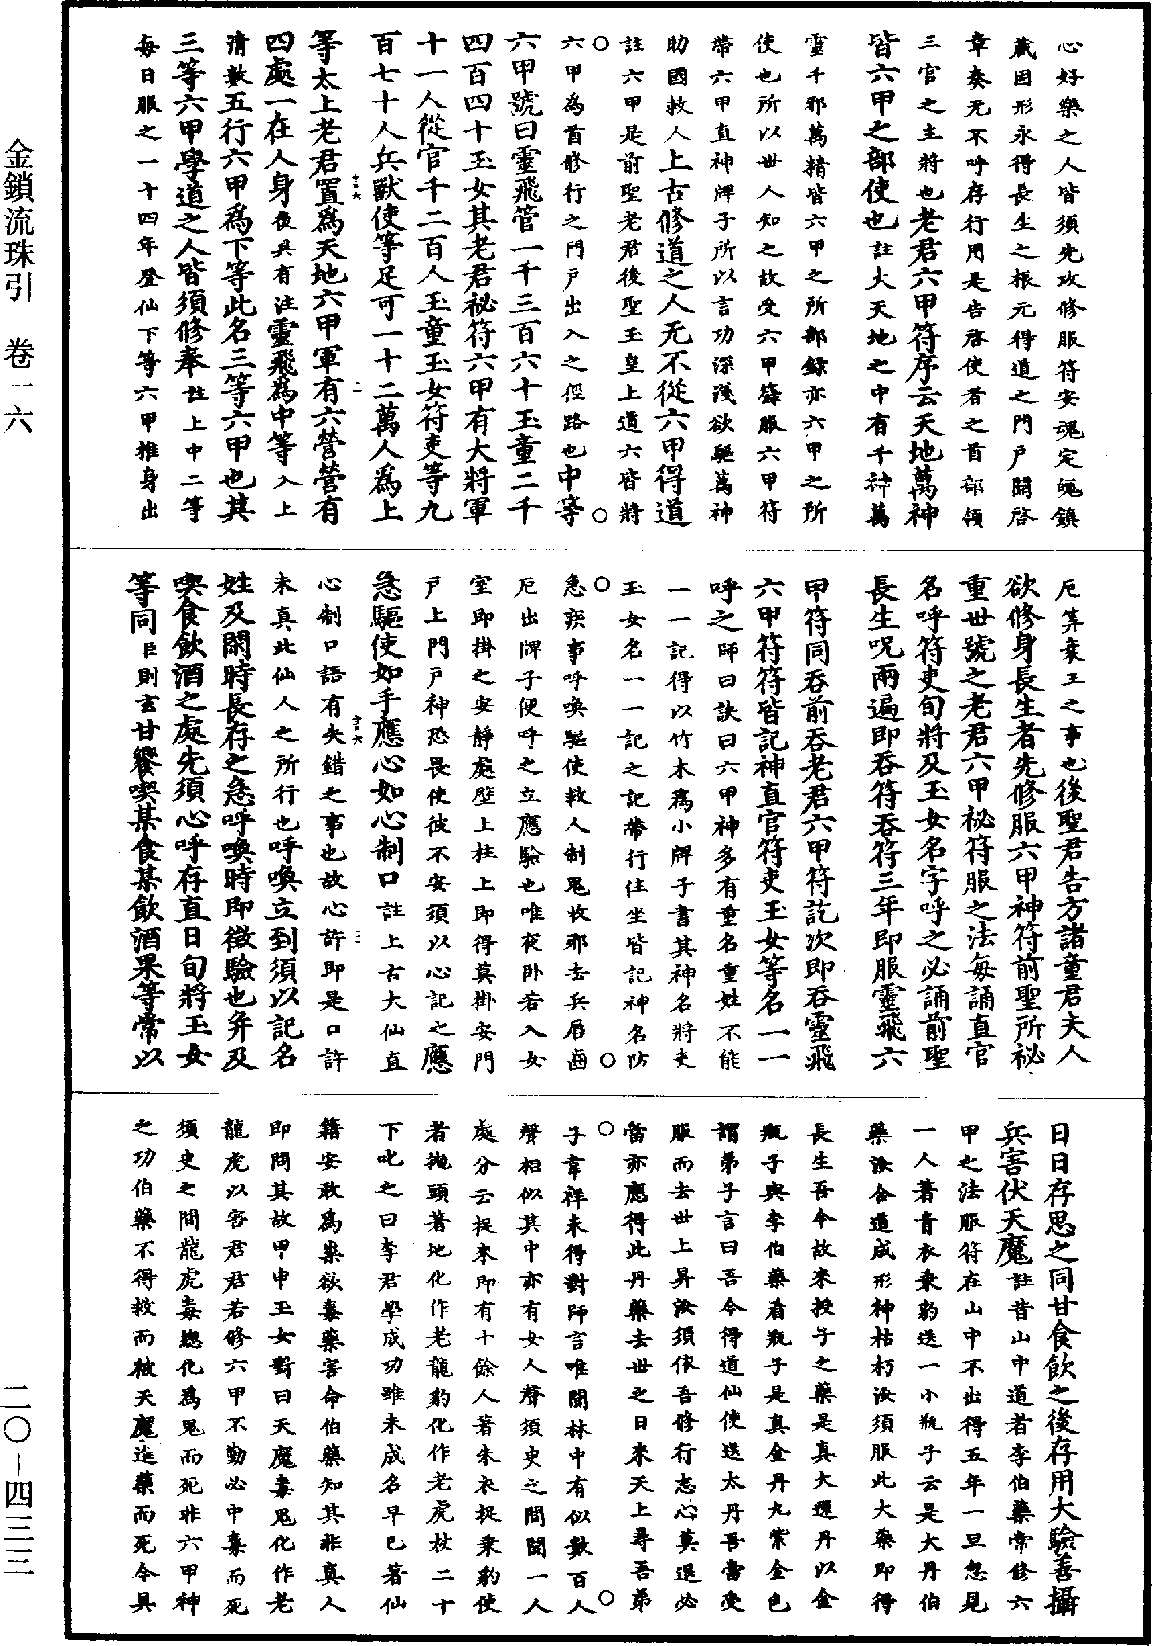 心好樂之人皆須先攻修服符安魂定魄鎮
藏固形永得長生之根元得道之門戶關啓
章奏无不呼存行用是告啓使者之首部領
三官之主將也老君六甲符序云天地萬神
皆六甲之部使也註大天地之中有千神萬
靈千邪萬精皆六甲之所部錄亦六甲之所
使也所以世人知之故受六甲籙服六甲符
帶六甲直神牌子所以言功深淺欲驅萬神
助國救人上古修道之人无不從六甲得道
註六甲是前聖老君後聖玉皇上道六皆將
六甲為首修行之門戶出入之徑路也中等
六甲號曰靈飛管一千三百六十玉童二千
四百四十玉女其老君祕符六甲有大將軍
十一人從官千二百人玉童玉女符吏等九
百七十人兵獸使等足可一十二萬人為上
等太上老君置為天地六甲軍有六營營有
四處一在人身後具有注靈飛為中等入上
清數五行六甲為下等此名三等六甲也其
三等六甲學道之人皆須修奉註上中二等
每日服之一十四年登仙下等六甲推身出
厄算衰王之事也後聖君告方諸童君夫人
欲修身長生者先修服六甲神符前聖所祕
重世號之老君六甲祕符服之法每誦直官
名呼符吏旬將及玉女名字呼之必誦前聖
長生呪兩遍即吞符吞符三年即服靈飛六
甲符同吞前吞老君六甲符訖次即吞靈飛
六甲符符皆記神直官符吏玉女等名一一
呼之師曰訣曰六甲神多有重名重姓不能
一一記得以竹木為小牌子書其神名將吏
玉女名一一記之記帶行住坐皆記神名防
急疾事呼喚驅使救人制鬼收邪去兵厄囪
厄出牌子便呼之立應驗也唯夜卧若入女
室即掛之安靜處壁上柱上即得莫掛安門
戶上門戶神恐畏使彼不安須以心記之應
急驅使如手應心如心制口註上古大仙直
心制口語有失錯之事也故心許即是口許
未真此仙人之所行也呼喚立到須以記名
姓及閑時長存之急呼喚時即徵驗也并及
喫食飲酒之處先須心呼存直日旬將玉女
等同臣則玄甘饗喫某食某飲酒果等常以
日日存思之同甘食飲之後存用大驗善攝
兵害伏天魔註昔山中道者李伯藥常修六
甲之法服符在山中不出得五年一旦忽見
一人著青衣乘豹送一小瓶子云是大丹伯
藥汝合道成形神枯朽汝須服此大藥即得
長生吾今故來授子之藥是真大還丹以金
瓶子與李伯藥看瓶子是真金丹九紫金色
謂弟子言曰吾今得道仙使送太丹吾當受
服而去世上昇汝須依吾修行志心莫退必
當亦應得此丹藥去世之日來天上尋吾弟
子韋祥未得對師言唯聞林中有似數百人
聲相似其中亦有女人聲須臾之間聞一人
處分云捉來即有十餘人著朱衣捉乘豹使
者拋頭著地化作老龍豹化作老虎杖二十
下叱之曰李君學成功雖未成名早已著仙
籍安敢為祟欲毒藥害命伯藥知其非真人
即問其故甲申玉女對曰天魔毒鬼化作老
龍虎以害君君若修六甲不勤必中毒而死
須臾之間龍虎毒總化為鬼而死非六甲神
之功伯藥不得救而被天魔進藥而死今具
金鎖流珠引　卷一六
二〇－四三三